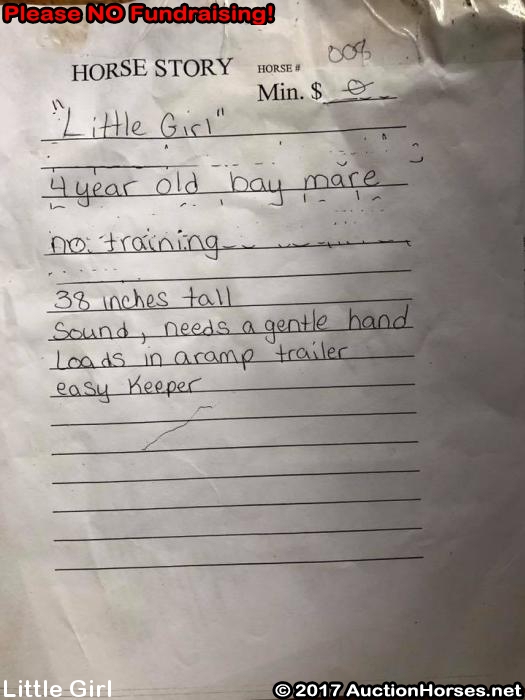 Please NO Fundraising!
008
HORSE STORY HORSE #
Min. $ 0
"Little Girl"
4 year old bay mare
no training
38 inches tall
Sound, needs a gentle hand
Loads in a ramp trailer
easy Keeper
Little Girl
© 2017 AuctionHorses.net